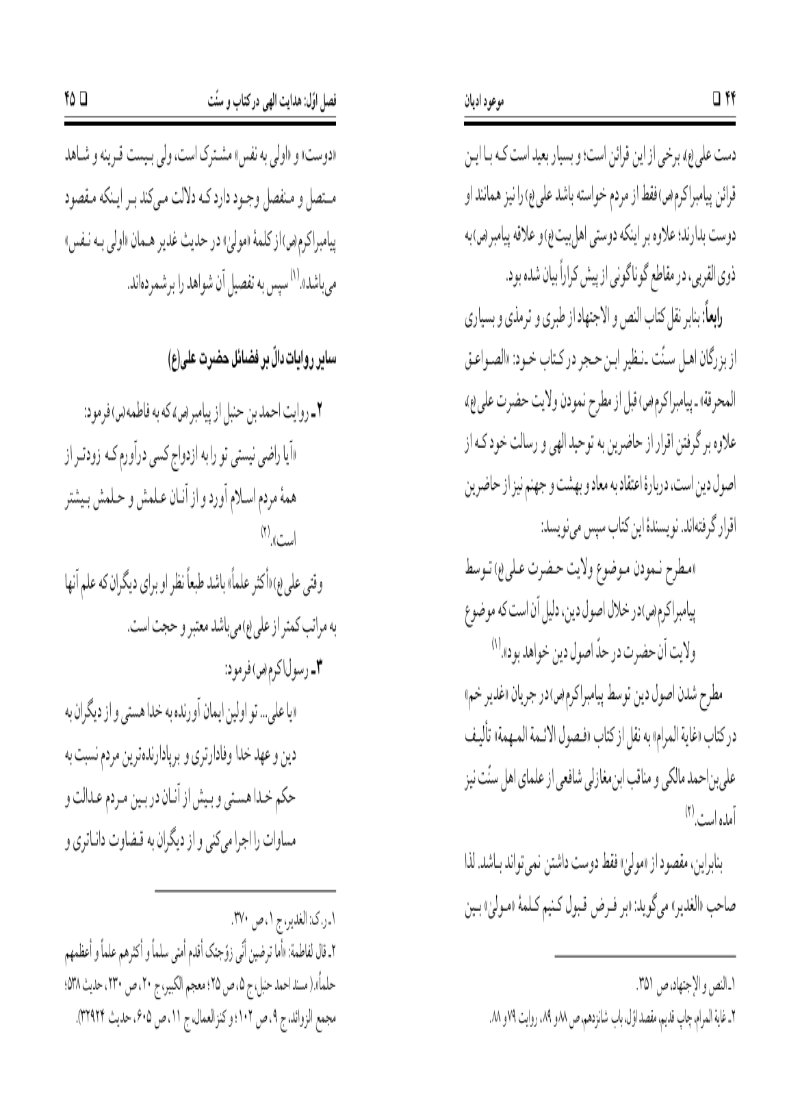 ۴۴ □ موعود ادیان
دست علی(ع)، برخی از این قرائن است؛ و بسیار بعید است که با این
قرائن پیامبراکرم(ص) فقط از مردم خواسته باشد علی(ع) را نیز همانند او
دوست بدارند؛ علاوه بر اینکه دوستی اهل‌بیت(ع) و علاقه پیامبر(ص) به
ذوی القربی، در مقاطع گوناگونی از پیش کراراً بیان شده بود.
رابعاً: بنابر نقل کتاب النص و الاجتهاد از طبری و ترمذی و بسیاری
از بزرگان اهل سنّت ـ نظیر ابن حجر در کتاب خود: «الصواعق
المحرقة» ـ پیامبراکرم(ص) قبل از مطرح نمودن ولایت حضرت علی(ع)،
علاوه بر گرفتن اقرار از حاضرین به توحید الهی و رسالت خود که از
اصول دین است، دربارهٔ اعتقاد به معاد و بهشت و جهنم نیز از حاضرین
اقرار گرفته‌اند. نویسندهٔ این کتاب سپس می‌نویسد:
«مطرح نمودن موضوع ولایت حضرت علی(ع) توسط
پیامبراکرم(ص) در خلال اصول دین، دلیل آن است که موضوع
ولایت آن حضرت در حدّ اصول دین خواهد بود».(۱)
مطرح شدن اصول دین توسط پیامبراکرم(ص) در جریان «غدیر خم»
در کتاب «غایة المرام» به نقل از کتاب «فصول الائمة المهمة» تألیف
علی‌بن‌احمد مالکی و مناقب ابن‌مغازلی شافعی از علمای اهل سنّت نیز
آمده است.(۲)
بنابراین، مقصود از «مولیٰ» فقط دوست داشتن نمی‌تواند باشد. لذا
صاحب «الغدیر» می‌گوید: «بر فرض قبول کنیم کلمهٔ «مولیٰ» بین
۱ـ النص و الإجتهاد، ص ۳۵۱.
۲ـ غایة المرام، چاپ قدیم، مقصد اوّل، باب شانزدهم، ص ۸۸ و ۸۹، روایت ۷۹ و ۸۸.
فصل اوّل: هدایت الهی در کتاب و سنّت □ ۴۵
«دوست» و «اولی به نفس» مشترک است، ولی بیست قرینه و شاهد
متصل و منفصل وجود دارد که دلالت می‌کند بر اینکه مقصود
پیامبراکرم(ص) از کلمهٔ «مولیٰ» در حدیث غدیر همان «اولی به نفس»
می‌باشد».(۱) سپس به تفصیل آن شواهد را برشمرده‌اند.
سایر روایات دالّ بر فضائل حضرت علی(ع)
۲ـ روایت احمد بن حنبل از پیامبر(ص)، که به فاطمه(س) فرمود:
«آیا راضی نیستی تو را به ازدواج کسی درآورم که زودتر از
همهٔ مردم اسلام آورد و از آنان علمش و حلمش بیشتر
است».(۲)
وقتی علی(ع) «أکثر علماً» باشد طبعاً نظر او برای دیگران که علم آنها
به مراتب کمتر از علی(ع) می‌باشد معتبر و حجت است.
۳ـ رسول‌اکرم(ص) فرمود:
«یا علی... تو اولین ایمان آورنده به خدا هستی و از دیگران به
دین و عهد خدا وفادارتری و برپادارنده‌ترین مردم نسبت به
حکم خدا هستی و بیش از آنان در بین مردم عدالت و
مساوات را اجرا می‌کنی و از دیگران به قضاوت داناتری و
۱ـ ر.ک: الغدیر، ج ۱، ص ۳۷۰.
۲ـ قال لفاطمة: «أما ترضین أنّی زوّجتک أقدم أمتی سلماً و أکثرهم علماً و أعظمهم
حلماً».( مسند احمد حنبل، ج ۵، ص ۲۵؛ معجم الکبیر، ج ۲۰، ص ۲۳۰، حدیث ۵۳۸؛
مجمع الزوائد، ج ۹، ص ۱۰۲؛ و کنزالعمال، ج ۱۱، ص ۶۰۵، حدیث ۳۲۹۲۴).